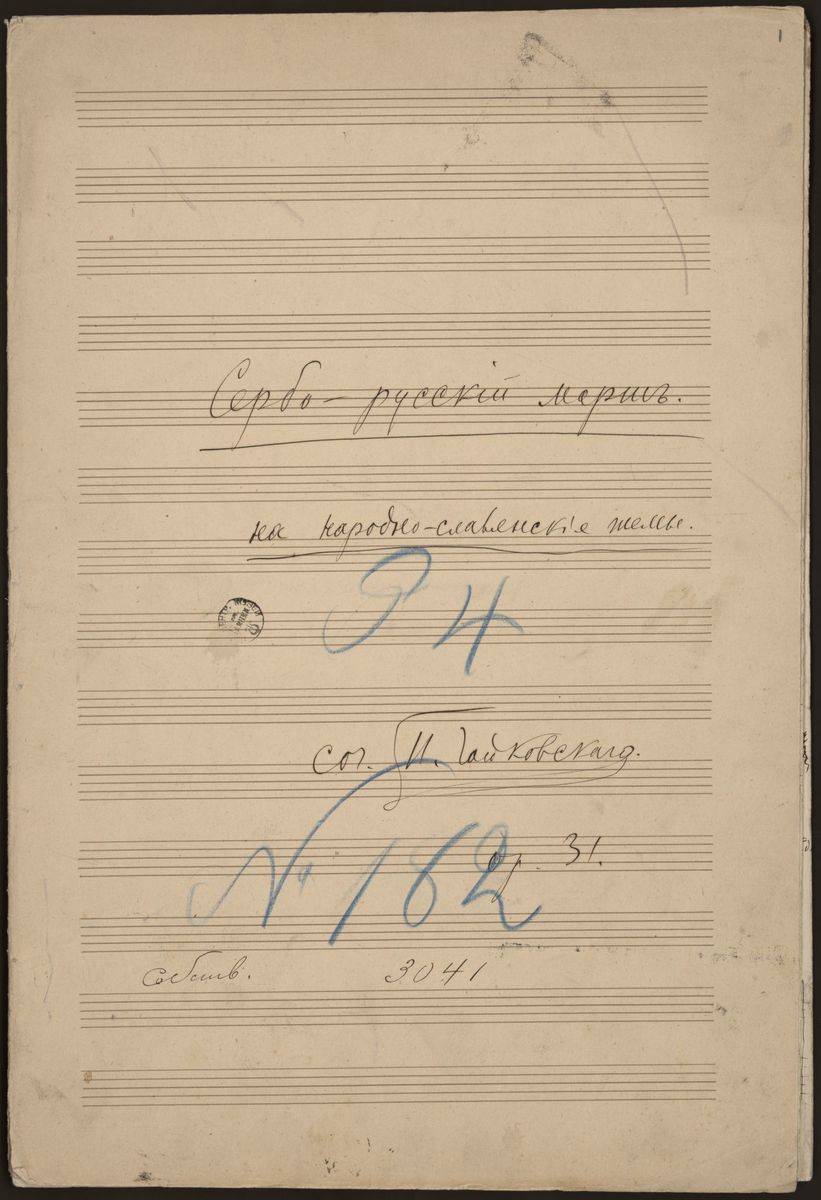 1
Сербо-русскій маршъ.
на народно-славянскія темы.
94
соч. П. Чайковскаго.
№ 182
op. 31.
собств. 3041